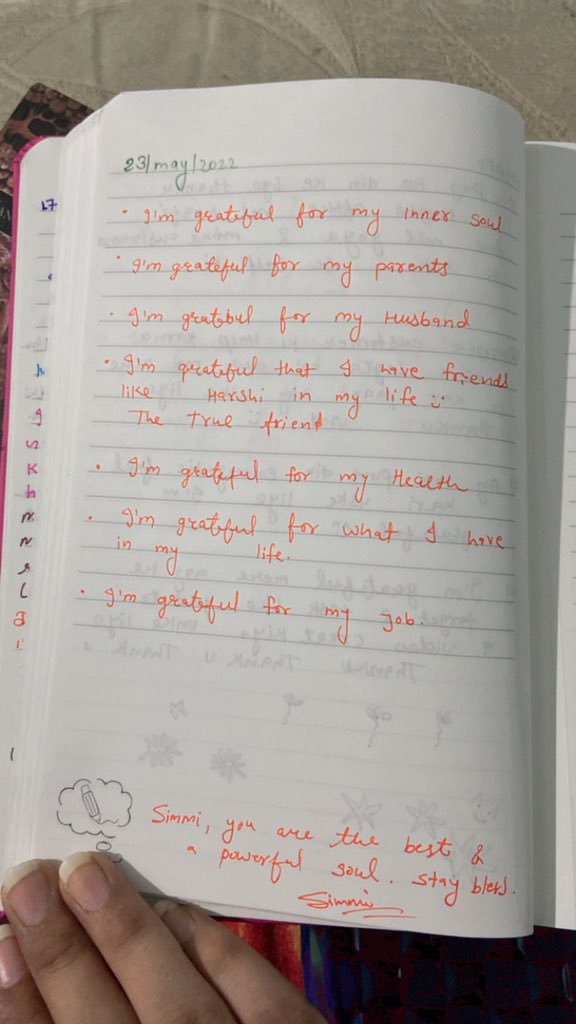 23/may/2022
• I'm grateful for my inner soul
• I'm grateful for my parents
• I'm gratebul for my Husband
• I'm grateful that I have friends
like Harshi in my life :)
The True friend
• I'm grateful for my Health
• I'm grateful for what I have
in my life.
• I'm grateful for my job.
Simmi, you are the best &
a powerful soul. stay bless.
Simmi